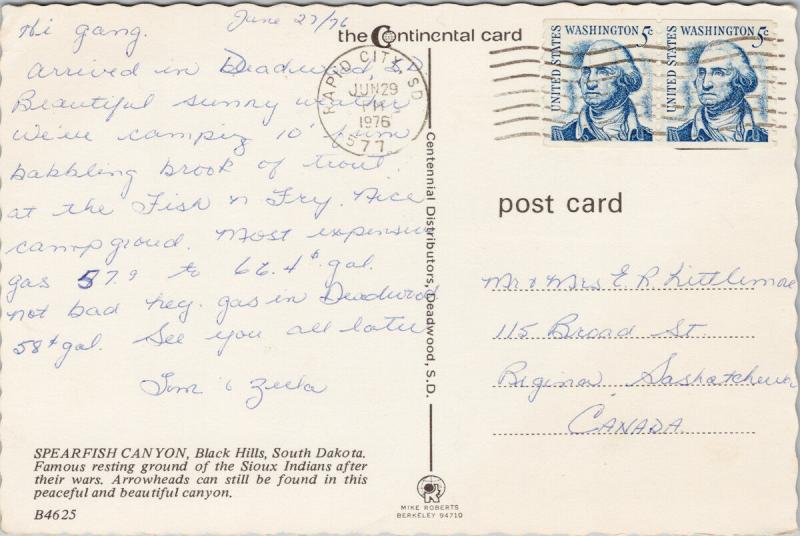 Hi gang. June 27/76
Arrived in Deadwood, S.D.
Beautiful sunny weather
We've camping 10' from
babbling brook of trout.
at the Fish n Fry. Nice
campground. Most expensive
gas 57.9 to 66.4¢ gal.
not bad heg. gas in Deadwood
58¢ gal. See you all later
Tom &
SPEARFISH CANYON, Black Hills, South Dakota.
Famous resting ground of the Sioux Indians after
their wars. Arrowheads can still be found in this
peaceful and beautiful canyon.
B4625
the Continental card
RAPID CITY, SD
JUN 29
PM
1976
577
Centennial Distributors, Deadwood, S.D.
MIKE ROBERTS
BERKELEY 94710
UNITED STATES WASHINGTON 5c
UNITED STATES WASHINGTON 5c
post card
Mr & Mrs E. R. Littlemore
115 Broad St.
Rigina Saskatchewan
CANADA